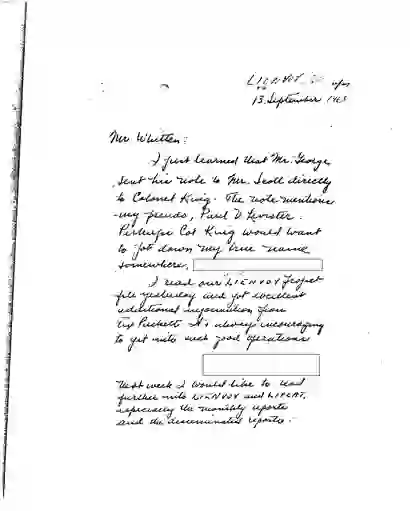 LIENVOY
13 September 1963
Mr. Whitten:
I just learned that Mr. George
sent his note to Mr. Scott directly
to Colonel King. The note mentions
my pseudo, Paul D. Levister.
Perhaps Col King would want
to jot down my true name
somewhere,
I read our LIENVOY Project
file yesterday and got excellent
additional information from
Puckett. It's always encouraging
to get into such good operations
Next week I would like to read
further into LIENVOY and LIFEAT,
especially the monthly reports
and the disseminated reports.